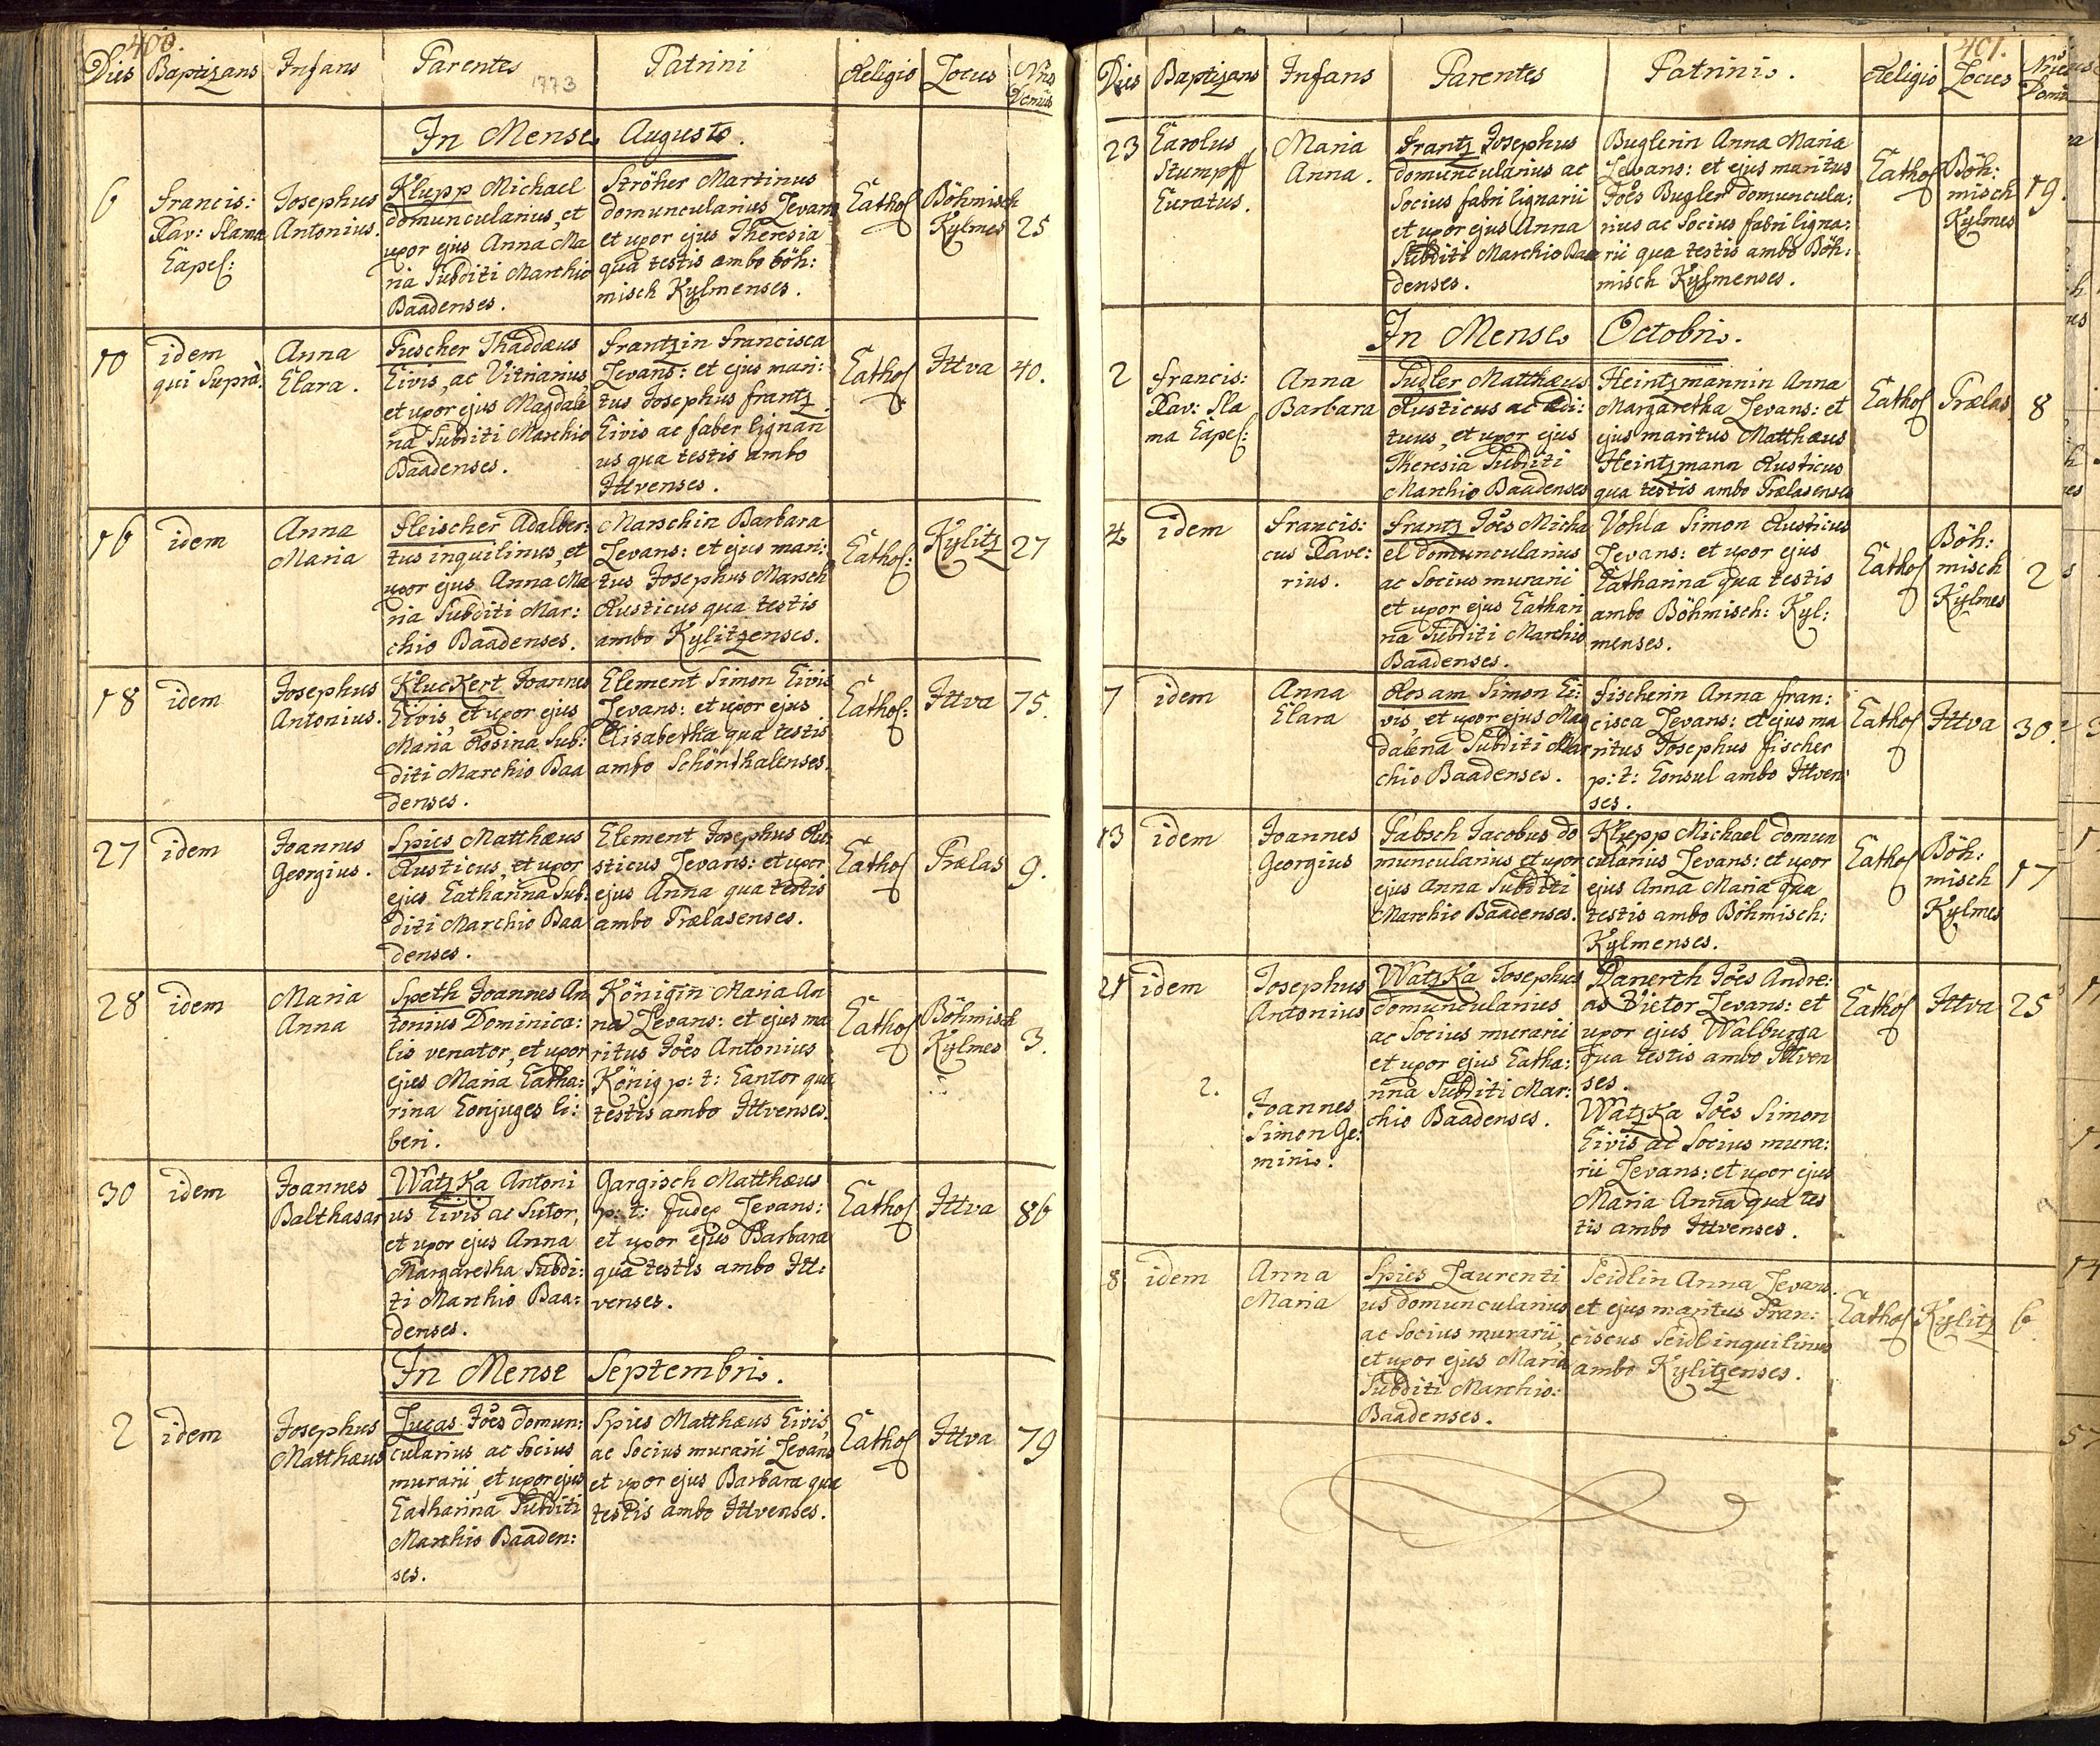 400.
Dies Baptizans Infans Parentes Patrini Religio Locus Nrus Domus
1773
In Mense Augusto.
6
Francis:
Xav: Slama
Capel:
Josephus
Antonius.
Klupp Michael
domuncularius, et
uxor ejus Anna Ma
ria Subditi Marchio
Baadenses.
Ströher Martinus
domuncularius Levans
et uxor ejus Theresia
qua testis ambo böh:
misch Kylmenses.
Cathol
Böhmisch
Kylmes
25
10
idem
qui Suprà.
Anna
Clara.
Thaddæus
Civis, ac Vitrianus,
et uxor ejus Magdale
na Subditi Marchio
Baadenses.
Frantzin Francisca
Levans: et ejus mari:
tus Josephus Frantz
Civis ac faber lignari
us qua testis ambo
Ittvenses.
Cathol
Ittva
40.
16
idem
Anna
Maria
Fleischer Adalber:
tus inquilinus, et
uxor ejus Anna Ma
ria Subditi Mar:
chio Baadenses.
Marschin Barbara
Levans: et ejus mari:
tus Josephus Marsch
Rusticus qua testis
ambo Kylitzenses.
Cathol:
Kylitz
27
18
idem
Josephus
Antonius.
Kluckert Joannes
Civis, et uxor ejus
Maria Rosina Sub:
diti Marchio Baa
denses.
Clement Simon Civis
Levans: et uxor ejus
Elisabetha qua testis
ambo Schönthalenses.
Cathol:
Ittva
75.
27
idem
Joannes
Georgius.
Spies Matthæus
Rusticus, et uxor
ejus Catharina Sub:
diti Marchio Baa
denses.
Clement Josephus Ru:
sticus Levans: et uxor
ejus Anna qua testis
ambo Prælasenses.
Cathol
Prælas
9.
28
idem
Maria
Anna
Speth Joannes An
tonius Dominica:
lis venator, et uxor
ejus Maria Catha:
rina Conjuges li:
beri.
Königin Maria An
na Levans: et ejus ma
ritus Jões Antonius
König p: t: Cantor qua
testis ambo Ittvenses.
Cathol
Böhmisch
Kylmes
3.
30
idem
Joannes
Balthasar
Watzka Antoni
us Civis ac Sutor,
et uxor ejus Anna
Margaretha Subdi:
ti Marchio Baa:
denses.
Gargisch Matthæus
p: t: Judex Levans:
et uxor ejus Barbara
qua testis ambo Itt:
venses.
Cathol
Ittva
86
In Mense Septembris.
2
idem
Josephus
Matthæus
Lucas Jões domun:
cularius ac Socius
murarii, et uxor ejus
Catharina Subditi
Marchio Baaden:
ses.
Spies Matthæus Civis,
ac Socius murarii Levans
et uxor ejus Barbara qua
testis ambo Ittvenses.
Cathol
Ittva
79
401.
Dies Baptizans Infans Parentes Patrinis. Religio Locus Nrus Domus
23
Carolus
Stumpff
Curatus.
Maria
Anna.
Frantz Josephus
domuncularius ac
Socius fabri lignarii
et uxor ejus Anna
Subditi Marchio Baa
denses.
Buglerin Anna Maria
Levans: et ejus maritus
Jões Bugler domuncula:
rius ac Socius fabri ligna:
rii qua testis ambo Böh:
misch Kylmenses.
Cathol
Böh:
misch
Kylmes
19.
In Mense Octobris.
2
Francis:
Xav: Sla
ma Capel:
Anna
Barbara
Pudler Matthæus
Rusticus ac Ædi:
tuus, et uxor ejus
Theresia Subditi
Marchio Baadenses
Heintzmannin Anna
Margaretha Levans: et
ejus maritus Matthæus
Heintzmann Rusticus
qua testis ambo Prælasenses
Cathol
Prælas
8
4
idem
Francis:
cus Xave:
rius.
Frantz Jões Micha
el domuncularius
ac Socius murarii
et uxor ejus Cathari
na Subditi Marchio
Baadenses.
Vohla Simon Rusticus
Levans: et uxor ejus
Catharina qua testis
ambo Böhmisch: Kyl:
menses.
Cathol
Böh:
misch
Kylmes
2
7
idem
Anna
Clara
Rosam Simon Ci:
vis, et uxor ejus Mag
dalena Subditi Mar
chio Baadenses.
Fischerin Anna Fran:
cisca Levans: et ejus ma
ritus Josephus Fischer
p: t: Consul ambo Ittven:
ses.
Cathol
Ittva
30.
13
idem
Joannes
Georgius
Pabsch Jacobus do
muncularius et uxor
ejus Anna Subditi
Marchio Baadenses.
Klupp Michael domun
cularius Levans: et uxor
ejus Anna Maria qua
testis ambo Böhmisch:
Kylmenses.
Cathol
Böh:
misch
Kylmes
17
21
idem
Josephus
Antonius
2.
Joannes
Simon Ge:
minis.
Watzka Josephus
domuncularius
ac Socius murarii
et uxor ejus Catha:
rina Subditi Mar:
chio Baadenses.
Jões Andre:
as Victor Levans: et
uxor ejus Walburga
qua testis ambo Ittven
ses.
Watzka Jões Simon
Civis ac Socius mura:
rii Levans: et uxor ejus
Maria Anna qua tes
tis ambo Ittvenses.
Cathol
Ittva
25
8
idem
Anna
Maria
Spies Laurenti
us domuncularius
ac Socius murarii,
et uxor ejus Maria
Subditi Marchio:
Baadenses.
Seidlin Anna Levans.
et ejus maritus Fran:
ciscus Seidl inquilinus
ambo Kylitzenses.
Cathol
Kylitz
6